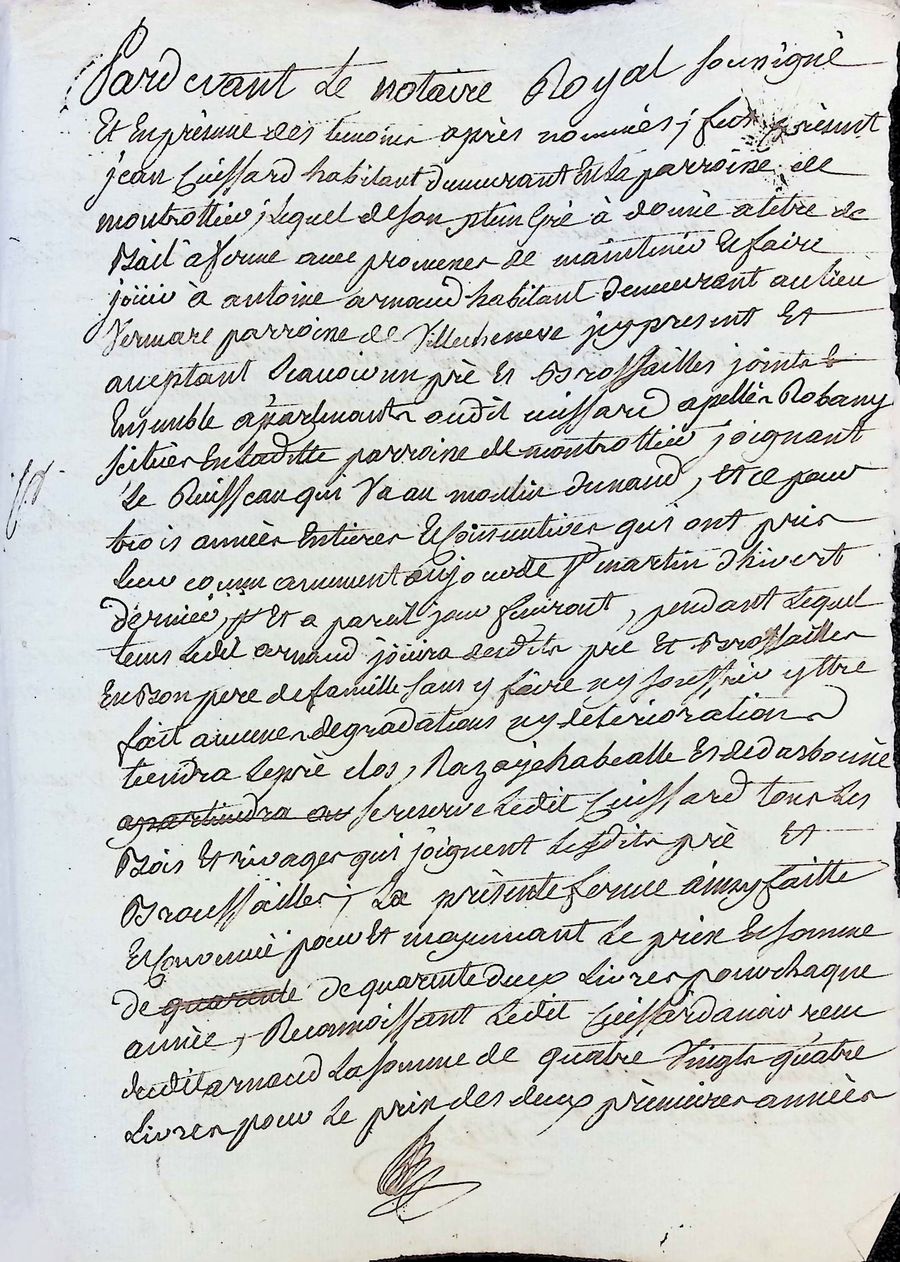 Pardevant Le notaire Royal soussigné
Et En présence des temoins après nommés ; fut présent
jean Cuissard habitant demeurant En La parroisse de
montrottier ; Lequel de son plein Gré à donné a titre de
Bail à ferme avec promesses de maintenir Et faire
joüir à antoine arnaud habitant demeurant au lieu
Vermare parroisse de Villecheneve jcy present Et
acceptant Scavoir un pré Et Brossailles joints
Ensemble appartenants audit cuissard apellés Robany
scitués En Laditte parroisse de montrottier joignant
Le Ruisseau qui Va au moulin dunaud, Et ce pour
trois années Entieres Et Consecutives qui ont pris
Leur commancement aujour de St martin d'hivert
dernier, Et a pareil jour finiront, pendant Lequel
tems Ledit arnaud joüira desdits pré Et Brossailles
En Bon pere de famille sans y faire ny souffrir ÿ être
fait aucunes degradations ny deterioration
tiendra Le pré clos,
apartiendra au se reserve Ledit Cuissard tous Les
Bois Et rivages qui joignent Lesdits pré Et
Broussailles ; La présente ferme ainsy faitte
Et Convenüe pour Et moyennant Le prix Et somme
de quarente de quarente deux Livres pour chaque
année, Reconnoissant Ledit Cuissard avoir recu
dudit arnaud La somme de quatre Vingts quatre
Livres pour Le prix des deux prèmieres années